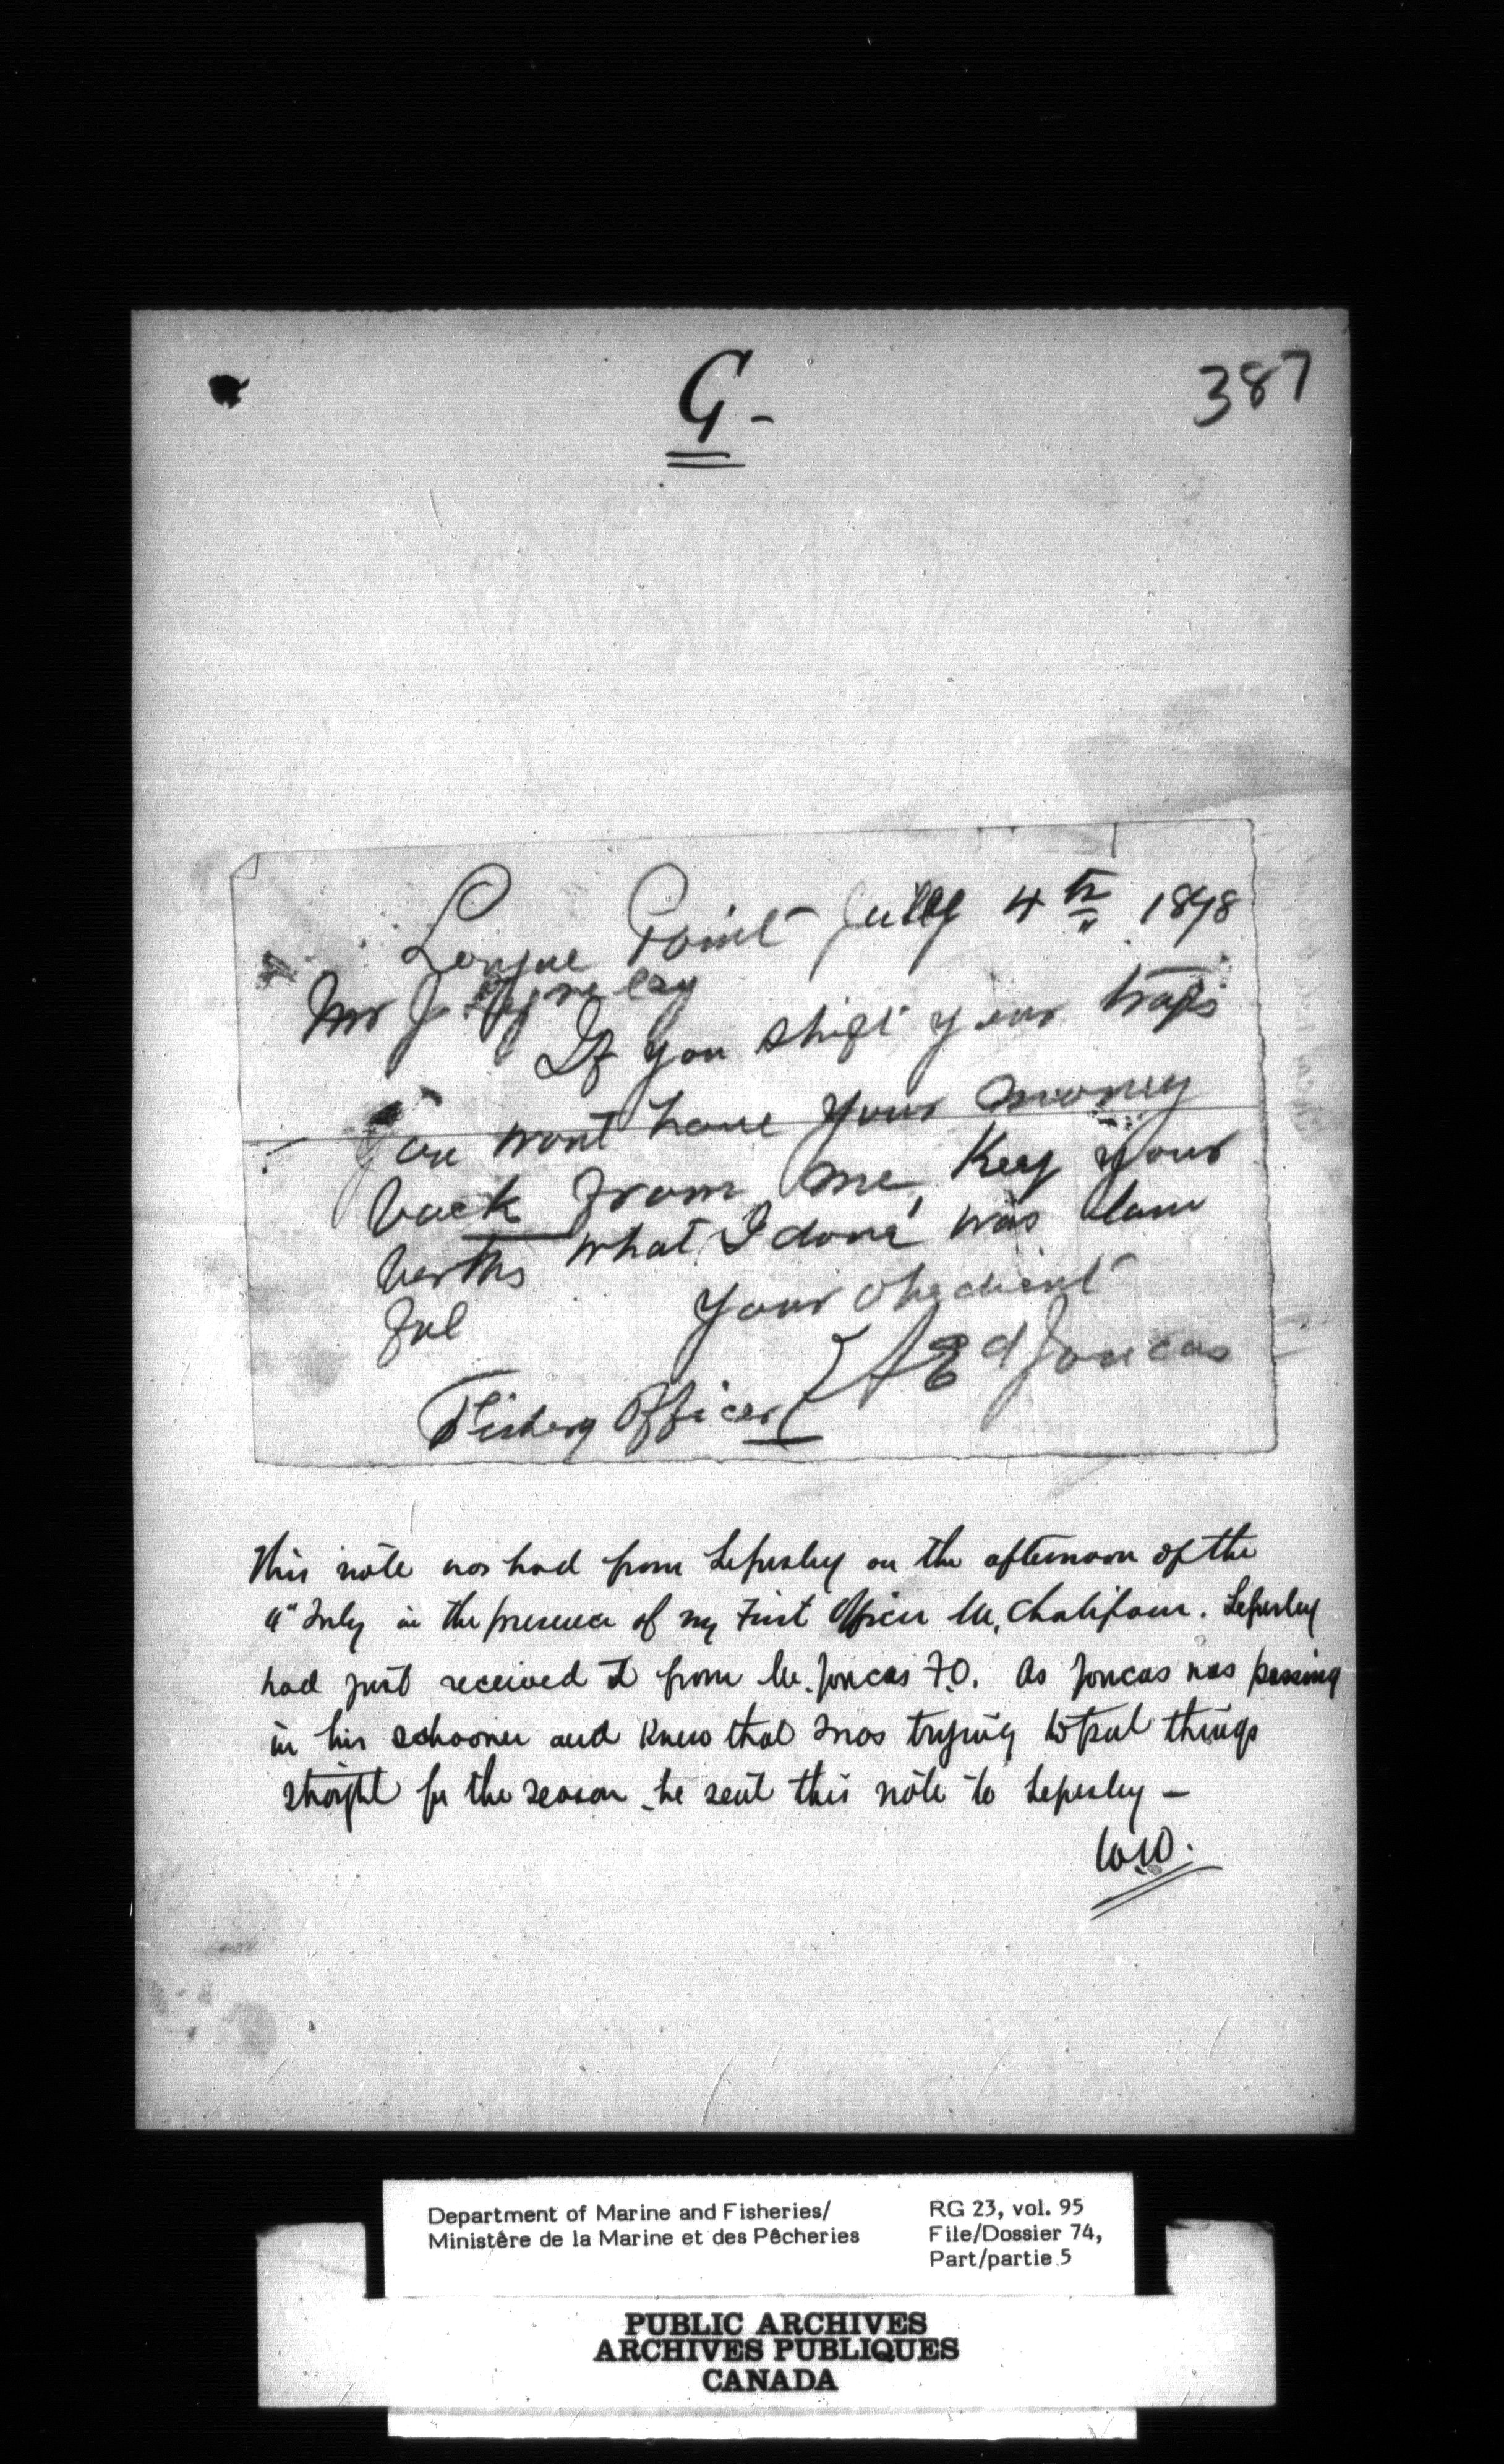 G-
387
Longue Point July 4th 1898
Mr J
If you shift your traps
you wont have your money
back from me, Keep your
berths what I done was law
ful
your obedient
A Ed Joncas
Fishery Officer
This note was had from Leperley on the afternoon of the
4" July in the presence of my First Officer Mr. Chalifour. Leperley
had just received it from Mr. Joncas F.O. As Joncas was passing
in his schooner and knew that I was trying to put things
straight for the season he sent this note to Leperley -
W.W.
Department of Marine and Fisheries/
Ministère de la Marine et des Pêcheries
RG 23, vol. 95
File/Dossier 74,
Part/partie 5
PUBLIC ARCHIVES
ARCHIVES PUBLIQUES
CANADA